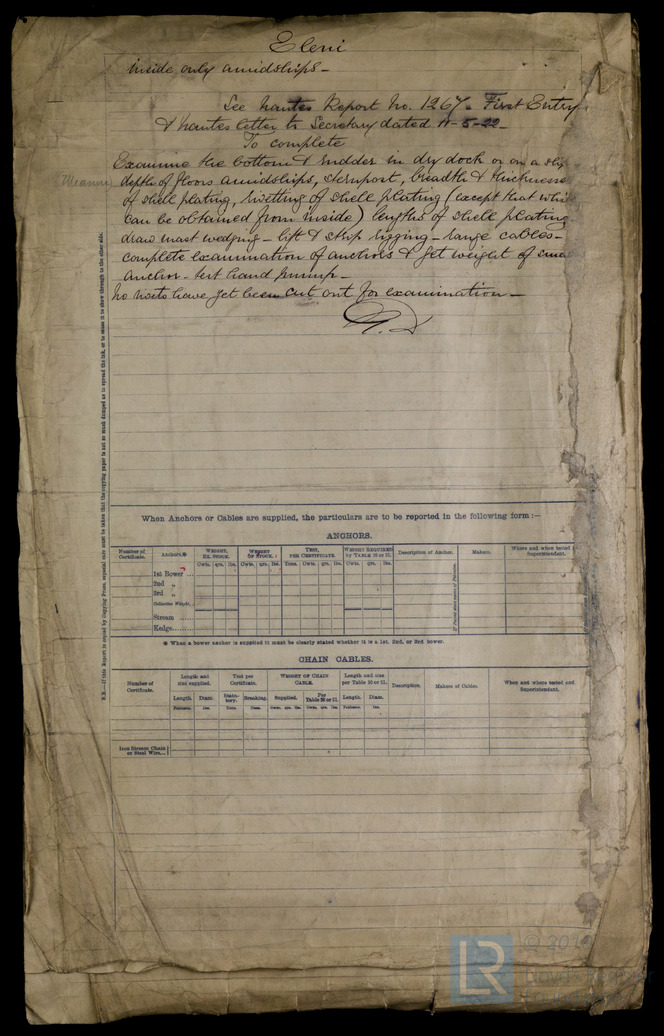 Eleni
inside only amidships -
See Nantes Report No. 1267. First Entry
& Nantes letter to Secretary dated 11-5-22 -
To complete
Examine the bottom & rudder in dry dock or on a slip
(Measure depth of floors amidships, sternpost, breadth & thickness
of shell plating, rivetting of shell plating (except that whi
can be obtained from inside) lengths of shell plating
draw mast wedging - lift & strip rigging - range cables -
complete examination of anchors & get weight of
anchor - test hand pump -
No rivets have yet been cut out for examination -
N.B.—If this Report is copied by Copying Press, especial care must be taken that the copying paper is not so much damped as to spread the ink, or to cause it to show through to the other side.
When Anchors or Cables are supplied, the particulars are to be reported in the following form :—
ANCHORS.
Number of Certificate. Anchors.* WEIGHT, EX. STOCK. WEIGHT OF STOCK. TEST, PER CERTIFICATE. WEIGHT REQUIRED by TABLE 10 or 11. Description of Anchor. Makers. Where and when tested Superintendent.
Cwts. qrs. lbs. Cwts. qrs. lbs. Tons. Cwts. qrs. lbs. Cwts. qrs. lbs.
1st Bower ...
2nd „
3rd „
Collective Weight
Stream
Kedge
If Patent state name of Patentee.
* When a bower anchor is supplied it must be clearly stated whether it is a 1st, 2nd, or 3rd bower.
CHAIN CABLES.
Number of Certificate. Length and size supplied. Test per Certificate. WEIGHT OF CHAIN CABLE. Length and size per Table 10 or 11. Description. Makers of Cables. When and where tested and Superintendent.
Length. Diam. Statutory. Breaking. Supplied. Per Table 10 or 11. Length. Diam.
Fathoms. Ins. Tons. Tons. Cwts. qrs. lbs. Cwts. qrs. lbs. Fathoms. Ins.
Iron Stream Chain or Steel Wire...
LR
Lloyd's Register
Foundation